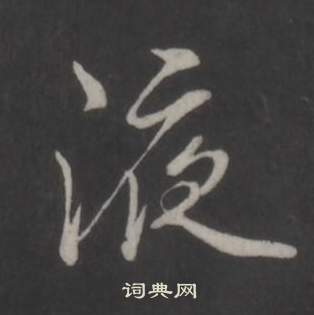 液
词典网